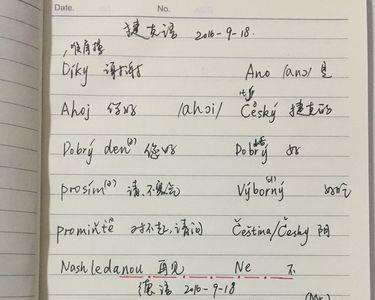 Date. No.
捷克语 2016-9-18.
Díky 谢谢 Ano /ano/ 是
Ahoj 你好 /ahoi/ Český 捷克的
Dobrý den 您好 Dobrý 好
prosím 请、不客气 Výborný 好吃
promiňte 对不起,请问 Čeština/Česky 阴
Nashledanou 再见 Ne 不
德语 2016-9-18